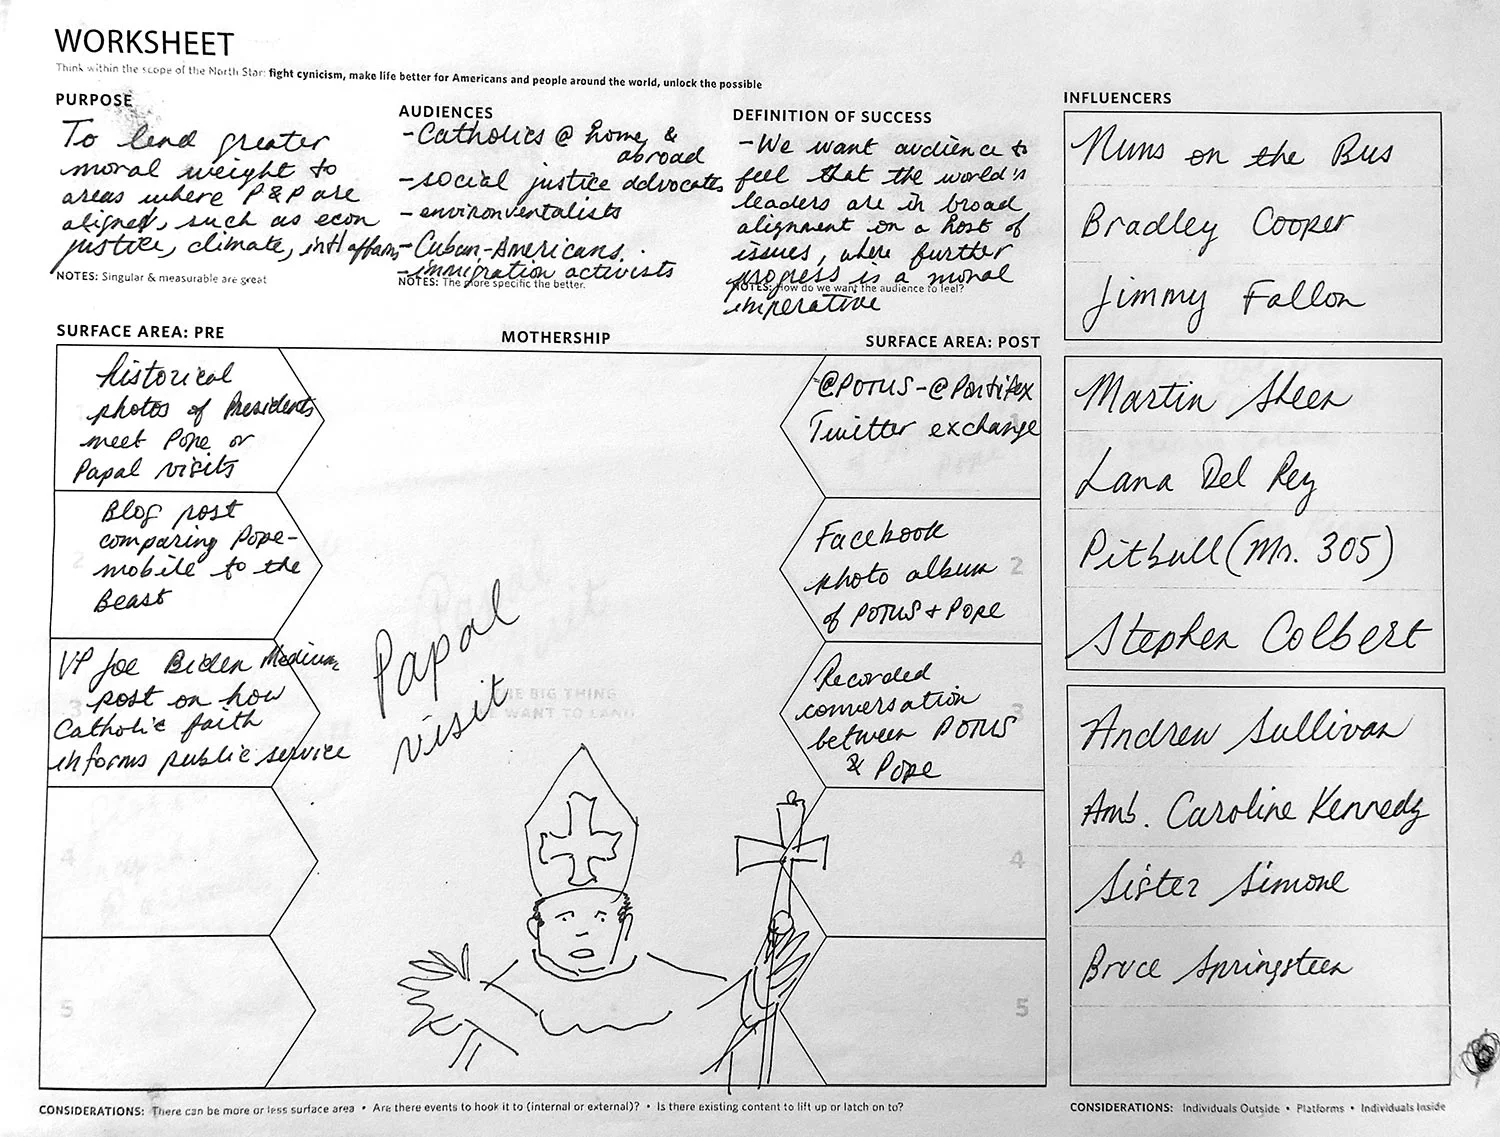 WORKSHEET
Think within the scope of the North Star: fight cynicism, make life better for Americans and people around the world, unlock the possible
PURPOSE
To lend greater
moral weight to
areas where P&P are
aligned, such as econ
justice, climate, int'l affairs
NOTES: Singular & measurable are great
AUDIENCES
-Catholics @ home &
abroad
-social justice advocates
-environmentalists
-Cuban-Americans.
-immigration activists
NOTES: The more specific the better.
DEFINITION OF SUCCESS
-We want audience to
feel that the world's
leaders are in broad
alignment on a host of
issues, where further
progress is a moral
imperative
NOTES: How do we want the audience to feel?
SURFACE AREA: PRE
historical
photos of Presidents
meet Pope or
Papal visits
Blog post
comparing Pope-
mobile to the
Beast
2
VP Joe Biden Medium
post on how
Catholic faith
informs public service
3
4
5
MOTHERSHIP
Papal
visit
THE BIG THING
WE WANT TO LAND
SURFACE AREA: POST
@POTUS-@Pontifex
Twitter exchange
1
Facebook
photo album
of POTUS + Pope
2
Recorded
conversation
between POTUS
& Pope
3
4
5
INFLUENCERS
Nuns on the Bus
Bradley Cooper
Jimmy Fallon
Martin Sheen
Lana Del Rey
Pitbull (Mr. 305)
Stephen Colbert
Andrew Sullivan
Amb. Caroline Kennedy
Sister Simone
Bruce Springsteen
CONSIDERATIONS: There can be more or less surface area • Are there events to hook it to (internal or external)? • Is there existing content to lift up or latch on to?
CONSIDERATIONS: Individuals Outside • Platforms • Individuals Inside